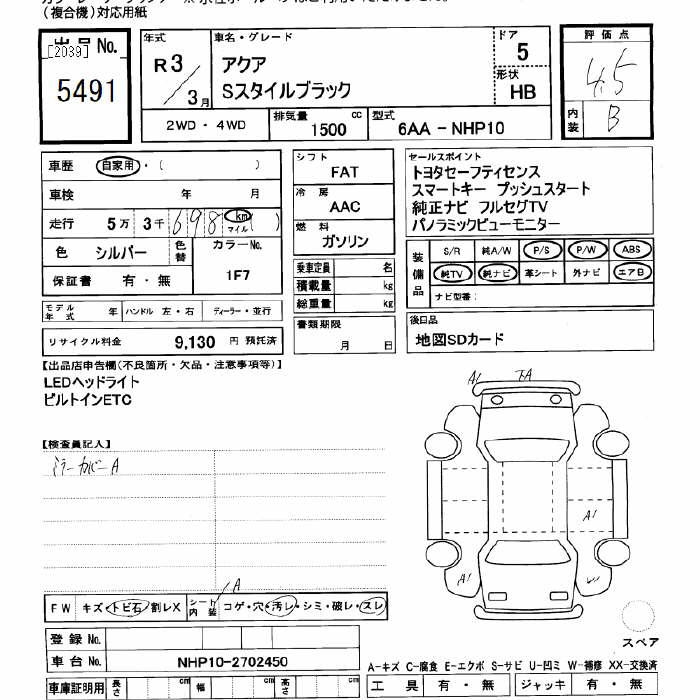 (複合機)対応用紙
出品No.
[2039]
5491
年式
R3
/3月
車名・グレード
アクア
Sスタイルブラック
ドア
5
形状
HB
2WD・4WD
排気量
1500 cc
型式
6AA-NHP10
評価点
4.5
内装
B
車歴 自家用・( )
車検 年 月
走行 5万 3千 698 km マイル ( )
色 シルバー
色替
カラーNo.
1F7
保証書 有・無
モデル年式 年 ハンドル 左・右 ディーラー・並行
リサイクル料金 9,130 円 預託済
シフト
FAT
冷房
AAC
燃料
ガソリン
乗車定員 名
積載量 kg
総重量 kg
書類期限
月 日
セールスポイント
トヨタセーフティセンス
スマートキー プッシュスタート
純正ナビ フルセグTV
パノラミックビューモニター
装備品
S/R 純A/W P/S P/W ABS
純TV 純ナビ 革シート 外ナビ エアB
ナビ型番:
後日品
地図SDカード
【出品店申告欄(不良箇所・欠品・注意事項等)】
LEDヘッドライト
ビルトインETC
【検査員記入】
ミラーカバーA
A1 下A
A1
A1
A
FW キズ・トビ石・割レX シート内装 コゲ・穴・汚レ・シミ・破レ・スレ
登録No.
車台No. NHP10-2702450
車庫証明用 長さ cm 幅 cm 高さ cm
スペア
A-キズ C-腐食 E-エクボ S-サビ U-凹ミ W-補修 XX-交換済
工具 有・無 ジャッキ 有・無